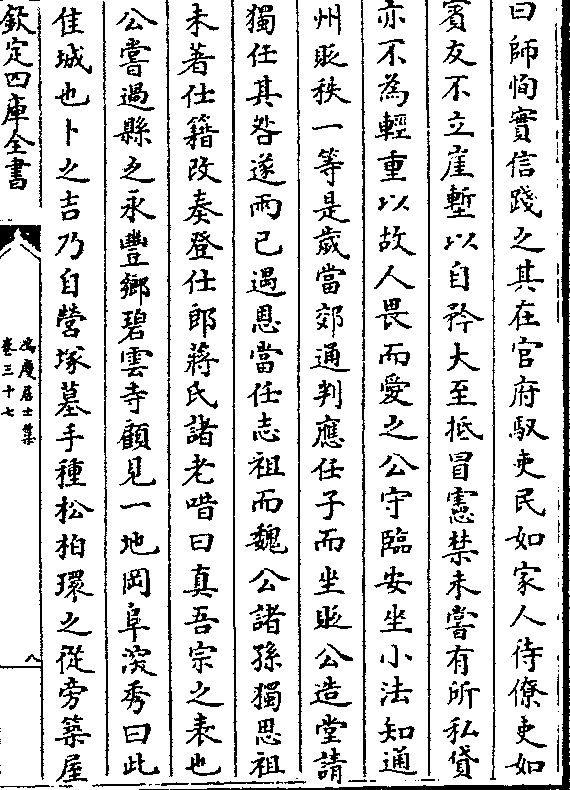 曰師恂實信踐之其在官府馭吏民如家人待僚吏如
賓友不立崖塹以自矜大至抵冒憲禁未嘗有所私貸
亦不為輕重以故人畏而愛之公守臨安坐小法知通
州貶秩一等是歲當郊通判應任子而坐貶公造堂請
獨任其咎遂兩已遇恩當任志祖而魏公諸孫獨思祖
未著仕籍改奏登仕郎蔣氏諸老喈曰真吾宗之表也
公嘗過縣之永豐鄉碧雲寺顧見一地岡阜深秀曰此
佳城也卜之吉乃自營塚墓手種松柏環之從旁築屋
欽定四庫全書
鴻慶居士集
卷三十七
八